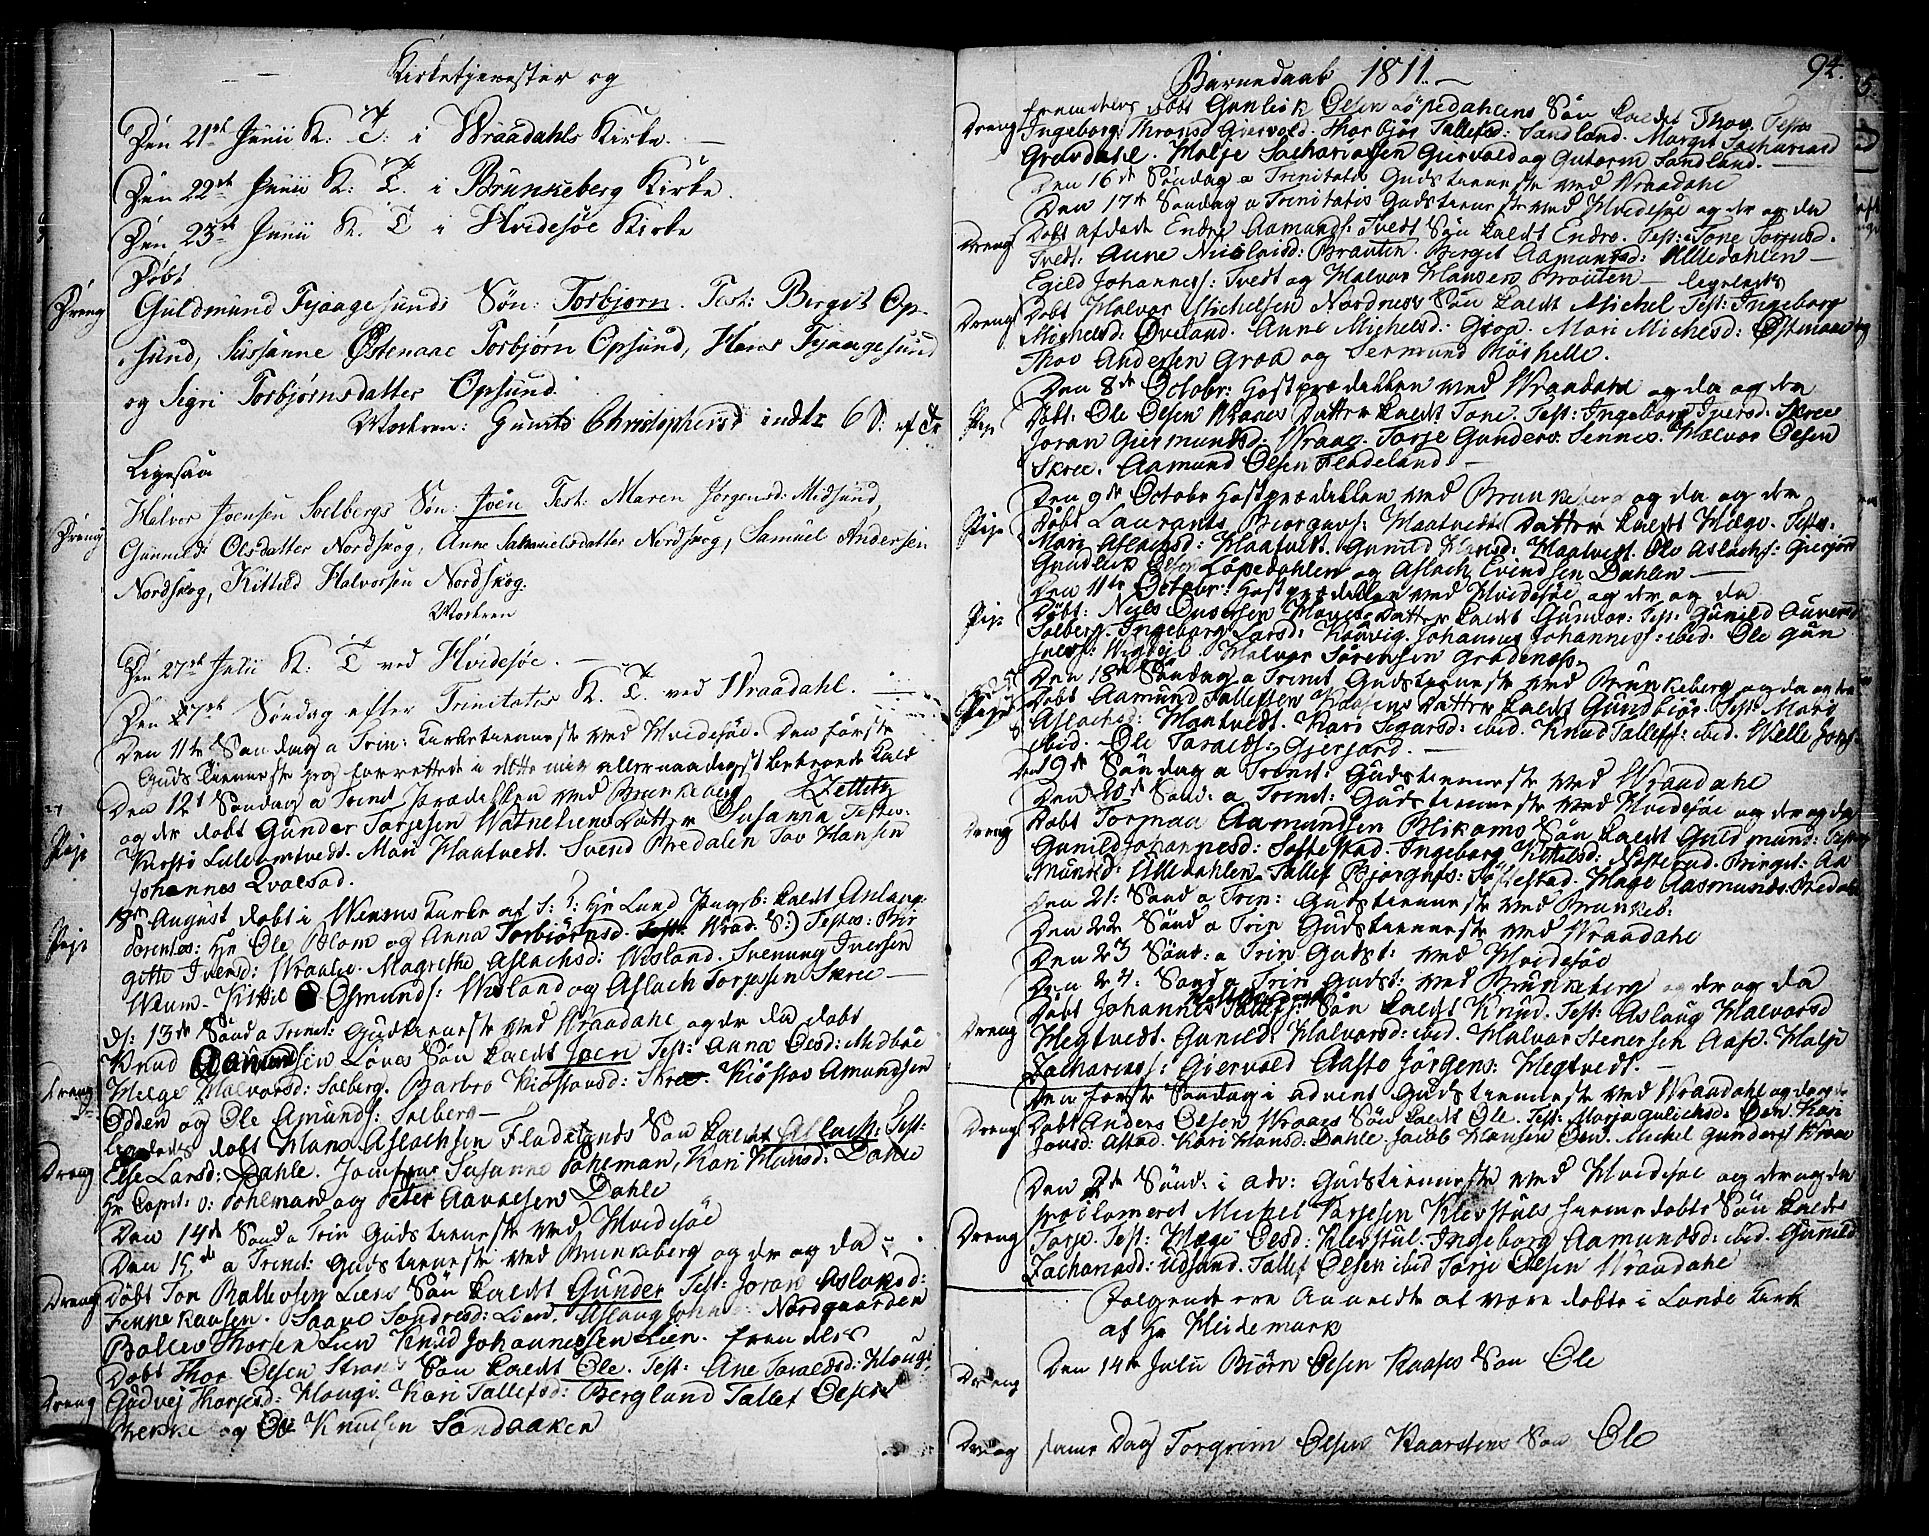 Kirketjenester og
Den 21de Junii K: T: i Wraadahls Kirke.
Den 22de Junii K: T. i Brunkeberg Kirke.
Den 23de Junii K. T i Hvidesøe Kirke
Døbt
Dreng
Guldmund Fjaagesunds Søn: Torbjørn. Test: Bergit Op-
sund, Susanne Østenaae Torbjørn Opsund, Hans Fjaagesund
og Sigri Torbjørnsdatter Opsund.
Moderen: Gunild Christophersd indtr 6 S: ef Tr
Ligesaa
Halvor Joensen Solbergs Søn: Joen Test: Maren Jørgensd: Midsund,
Dreng
Gunnild Olsdatter Nordskog, Anne Samuelsdatter Nordskog, Samuel Andersen
Nordskog, Kittild Halvorsen Nordskog.
Moderen
Den 27de Julii K: T ved Hvidesøe.
Den 7de Søndag efter Trinitatis K. T. ved Wraadahl.
Den 11te Søndag a Trin: Kirketienneste ved Hvidesøe. Den første
Guds tienneste jeg forrettede i dette mig allernaadigst betroede Kald
Zettitz
Den 12t Søndag a Trinit Prædikken ved Brunkeberg
Pige
og der døbt Gunder Torjesen Watneliens Datter Susanna Testes:
Kirsti Lilleomtvedt. Mari Haatvedt. Svend Bredalen Tov Hansen
Johannes Qvalsad.
18de August døbt i Weums Kirke af S: T: Hr Lund Pigeb: kaldt Anlaug
Pige
Parentes: Hr Ole Blom og Anna Torbiørnsd. Wraa. S:) Testes: Bir
gitte Iversd: Wraalie. Magrethe Aslachsd: Wisland. Svenung Iversen
Weum. Kittil Osmunds: Wisland og Aslach Torjesen Skree
D: 13de Sønd a Trinit: Gudstienneste ved Wraadahl og der da døbt
Knud Aamundsen Loves Søn kaldt Joen Test: Anna Olsd: Midbøe
Dreng
Helge Halvorsd: Solberg. Barbro Kiøstovsd: Skree. Kiøstov Amundsen
Odden og Ole Amunds: Solberg
Ligeledes døbt Hans Aslachsen Fladelands Søn kaldt Aslach. Test:
Dreng
Else Larsd: Dahle. Jomfrue Susanne Poheman, Kari Hansd: Dahle
Hr Capit: v: Pohleman og Peter Aanunsen Dahle
Den 14de Sønd a Trin Guds tienneste ved Hvidesøe
Den 15de a Trinit: Gudstienneste ved Brunkeberg og der og da
Dreng
Døbt Tov Ballevsen Liens Søn kaldt Gunder Test: Joran Aslaksd:
Finnekaasen. Saave Sondresd: Lien. Aslaug Johns: Nordgaarden
Bollev Thorsen Lien Knud Johannessen Lien. fremdeles
Døbt Thor Olsen Strans Søn kaldt Ole. Test: Ane Taraldsd: Hougi
Dreng
Gudvej Thorsesd: Hougi. Kari Tallefsd: Bergland Tallef Olsen
Berke og Ole Knudsen Sandaaken
Barnedaab 1811.
94.
Dreng
fremdeles døbt Gunleik Olsen Løpedahlens Søn kaldt Thov. Testes
Ingeborg Thronsd Giervold. Thorbjør Tallefsd: Sandland. Margit Zachariasd
Grovdahl. Halje Zachariasen Giervold og Gutorm Sandland.
Den 16de Søndag a Trinitatis Guds tienneste ved Wraadahl
Den 17de Søndag a Trinitatis Gudstienneste ved Hvidesøe og der og da
Dreng
Døbt afdøde Endre Aamunds: Tvedt Søn kaldt Endre. Test: Tone Torjusd.
Tvedt. Anne Nicolaisd: Brauten. Berget Aamundsd: Ulledahlen
Egild Johannes: Tvedt og Halvor Hansen Brouten. ligeledes
Dreng
Døbt Halvor Michelsen Nordnes Søn kaldt Michel. Test: Ingeborg
Michelsd: Øveland. Anne Michelsd: Groa. Mari Michelsd: Østenaae og
Thov Andersen Groa og Sermund Moshelle.
Den 8de Octobr: Høstprædikken ved Wraadahl og da og der
Pige
Døbt: Ole Olsen Haaves Datter kaldt Tone. Test: Ingeborg Iversd: Skree
Joran Giermundsd: Wraae. Torje Gunders: Sennes. Halvor Olsen
Skree. Aamund Olsen Fladeland.
Den 9de Octobr Høstprædikken ved Brunkeberg og da og der
Pige
Døbt Laurants Biørgufs: Haatvedts Datter kaldt Hæge. Testes:
Mari Aslachsd: Haatvedt. Gunild Hansd: Haatvedt. Ole Aslachs: Gierjord
Gundleik Olsen Løpedahlen og Aslach Evindsen Dahlen
Den 11te Octobr: Høstprædikken ved Hvidesøe og der og da
Pige
Døbt: Niels Ousersen Haves Datter kaldt Gunvor: Test: Gunild Ouversd
Solberg. Ingeborg Larsd: Kaavig. Johannes Johannes: ibid. Ole Gun
Halvor Sørensen Grodenæs.
Den 18de Søndag a Trinit Gudstienneste ved Brunkeberg og da og der
Pige
Døbt Aamund Tallefsen Kaasens Datter kaldt Gundbiør. Test Mari
Aslachsd: Haatvedt. Kari Segarsd: ibid. Knud Tallefs: ibid.
ibid. Ole Taralds: Gierjord.
Den 19de Søndag a Trinit: Gudstienneste ved Wraadahl
Den 20de Sønd: a Trinit: Gudstienneste ved Hvidesøe og der og da
Dreng
Døbt Tormaa Aamundsen Blikoms Søn kaldt Guldmund: Test:
Gunild Johannesd: Softestad. Ingeborg Kittilsd: Nosterud. Birget: Aa
mundsd: Ulledahlen. Tallef Bjorgufs: Softestad. Hage Aasmunds: Bredal
Den 21: Sønd a Trin: Gudstienneste ved Brunkeb:
Den 22 Sønd a Trin Guds tienneste ved Wraadahl
Den 23 Sønd: a Trin Gudst: ved Hvidesøe
Den 24. Sønd a Trin Gudst: ved Brunkeberg og der og da
Dreng
Døbt Johannes Tallefs: Søn kaldt Knud. Test: Aslaug Halvorsd
Hegtvedt. Gunild Halvorsd: ibid. Halvor Stenersen Aase. Halje
Zacharias: Giervold Aasto Jørgens: Hegtvedt.
Den første Søndag i Advent Gudstienneste ved Wraadahl og der og da
Dreng
Døbt Anders Olsen Wraaes Søn kaldt Ole. Test: Marja Gulichsd: Øen. Kari
Jonsd: Astad. Kari Hansd: Dahle. Jacob Hansen Øen. Michel Gunders Wraae
Den 2de Sønd: i Adv: Gudstienneste ved Hvidesøe og der og da
proclameret Michel Tarjesen Klevstuls hiemmedøbte Søn kaldt
Dreng
Torje. Test: Hæge Olsd: Klevstul. Ingeborg Aamundsd: ibid. Gunild
Zachariasd: Udsund. Tallef Olsen ibid Torje Olsen Wraadahl
Følgende ere Anmeldte at være døbte i Lunde Kirke
af Hr Heidemark
Dreng
Den 14de Julii Biørn Olsen Kaases Søn Ole
Dreng
samme Dag Torgrim Olsen Kaarstens Søn Ole